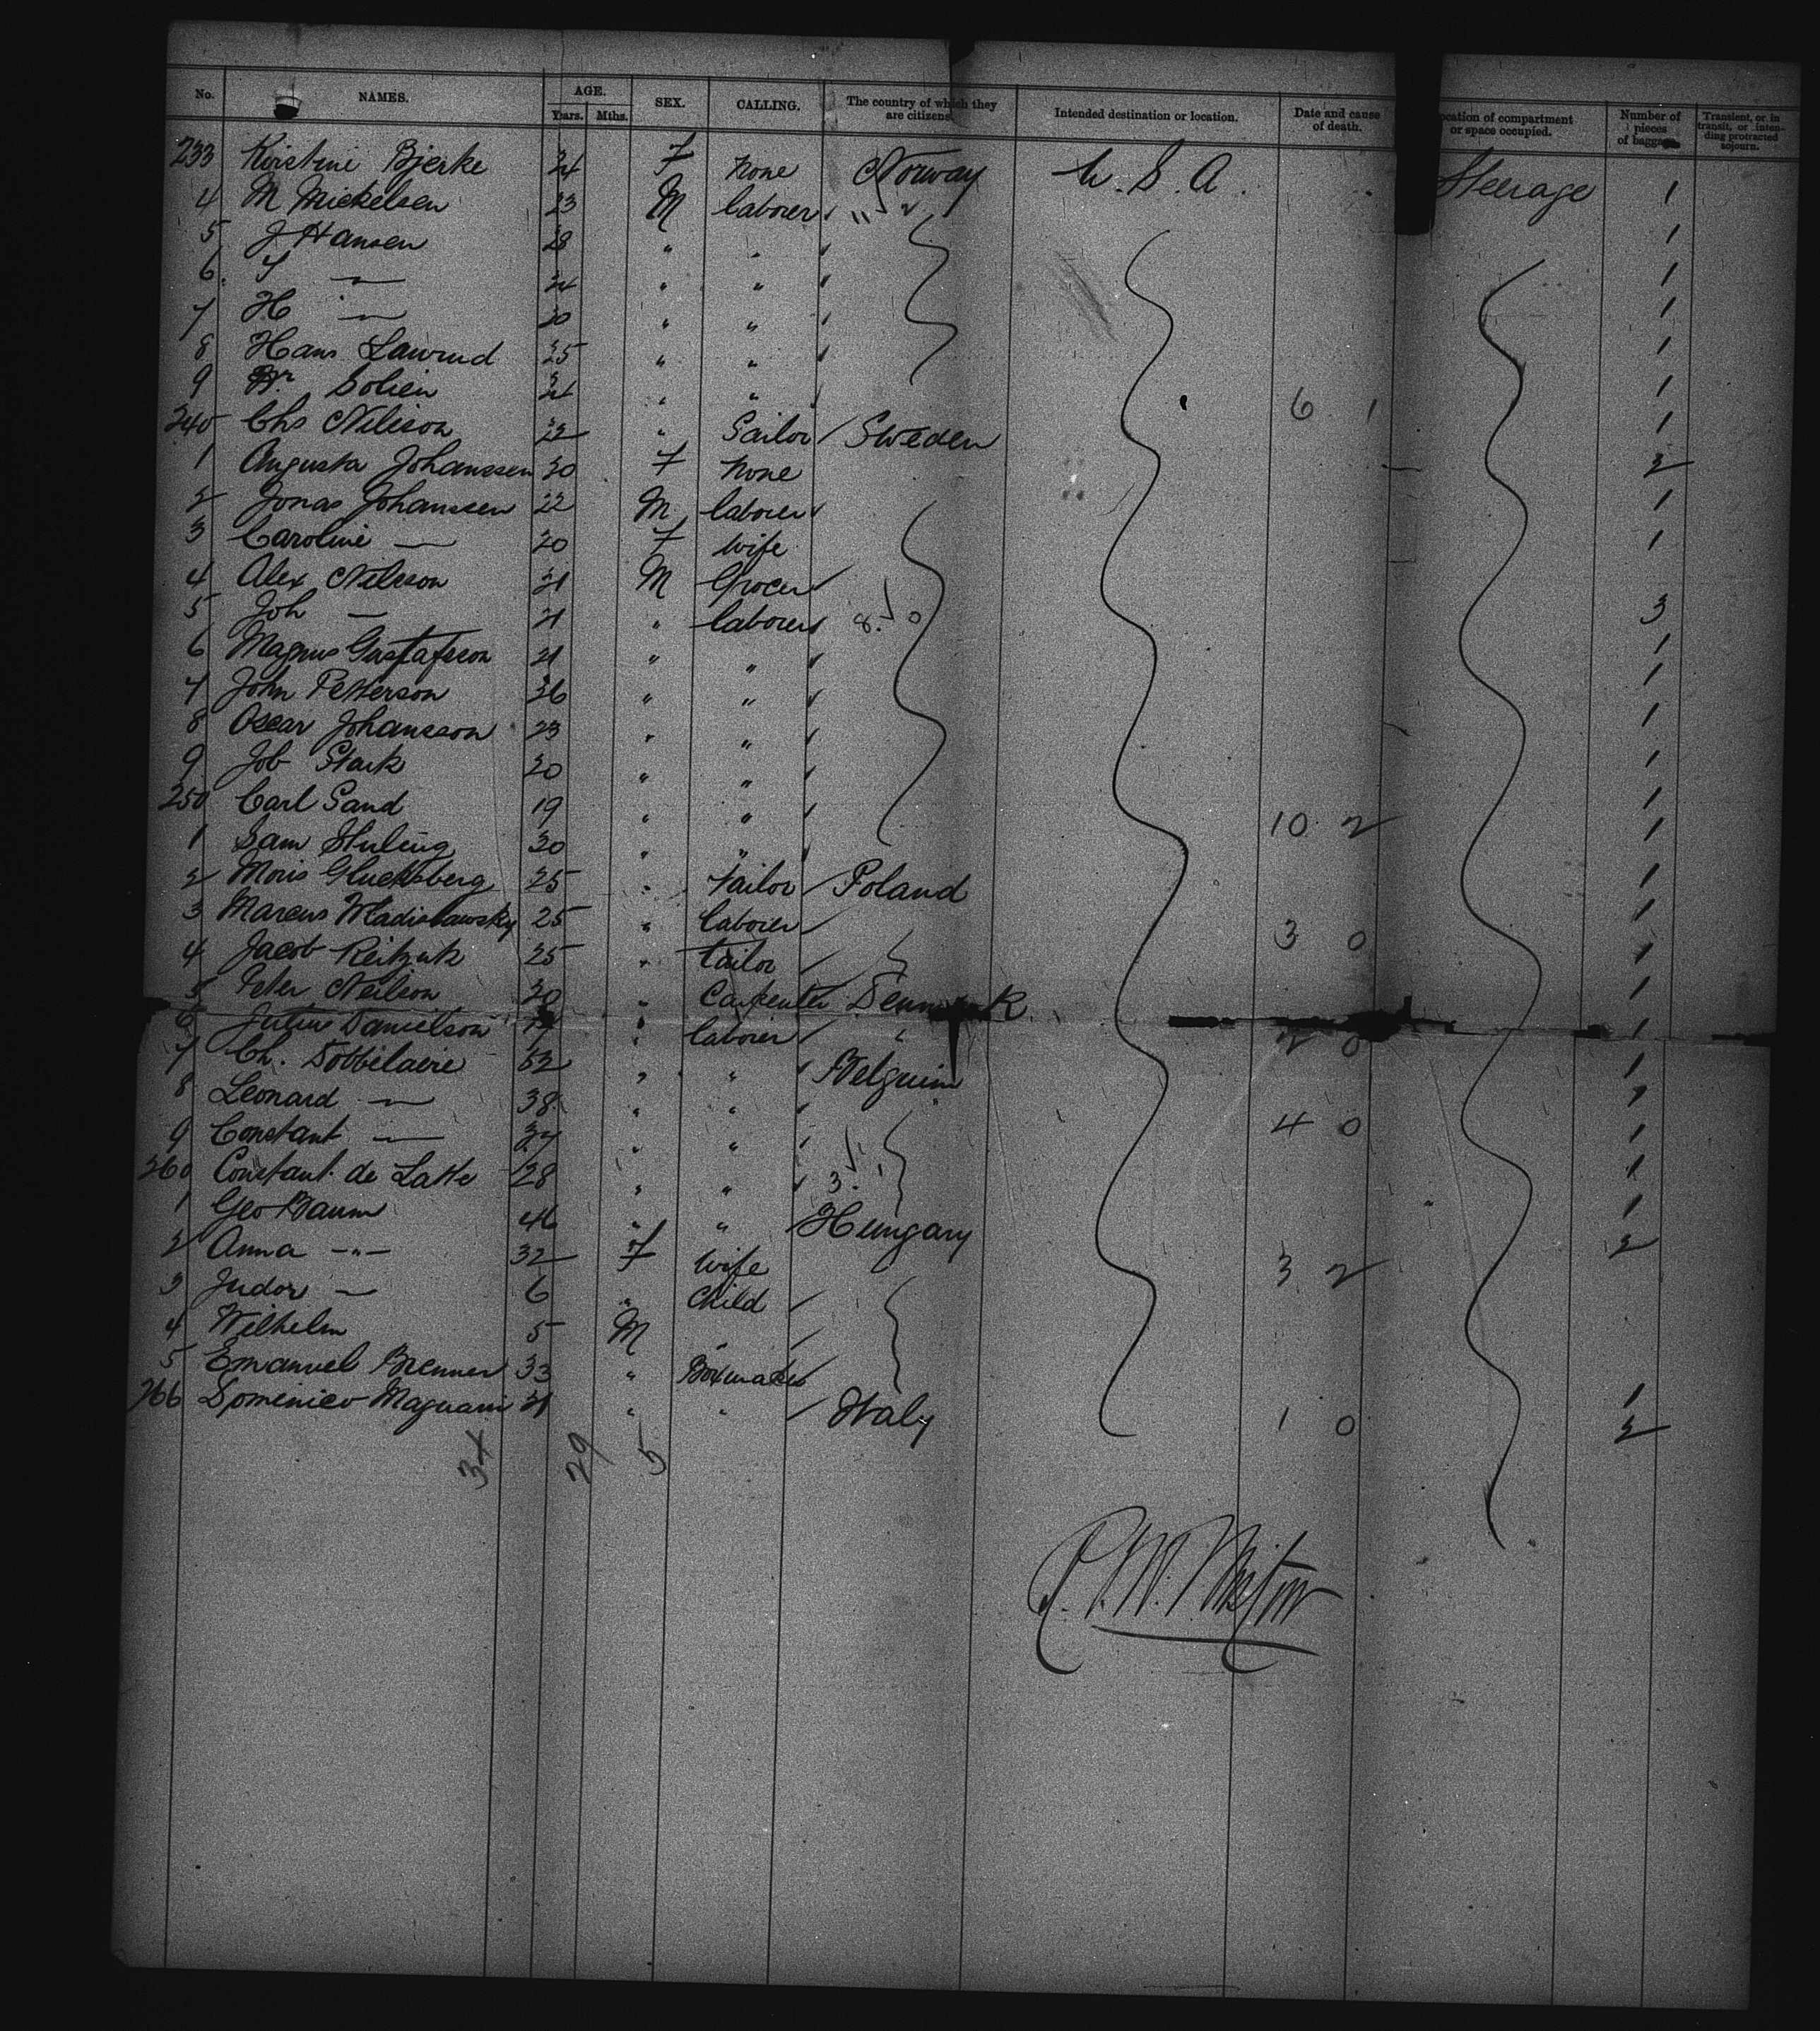 No. NAMES. AGE. Years. Mths. SEX. CALLING. The country of which they are citizens. Intended destination or location. Date and cause of death. ocation of compartment or space occupied. Number of pieces of baggage. Transient, or in transit, or intending protracted sojourn.
233 Kirstine Bjerke 24 F None Norway U.S.A. Steerage 1
4 M Mickelsen 23 M laborer " 1
5 J Hansen 28 " " 1
6 — 24 " " 1
7 H — 20 " " 1
8 Hans Laurud 25 " " 1
9 Solien 21 " " 6 1 1
240 Chs Nilsson 22 " Sailor Sweden 1
1 Augusta Johanssen 20 F None 2
2 Jonas Johanssen 22 M laborer 1
3 Caroline — 20 F wife 1
4 Alex Nilsson 21 M Grocer
5 Joh — 21 " laborer 8 0 3
6 Magnus Gustafsson 21 " " 1
7 John Petterson 36 " " 1
8 Oscar Johansson 23 " " 1
9 Job Stark 20 " " 1
250 Carl Sand 19 " " 10 2 1
1 Sam 30 " " 1
2 Moris Glucksberg 25 " tailor Poland 1
3 Marcus Wladislawsky 25 " laborer 3 0 1
4 Jacob 25 " tailor 1
5 Peter Neilson 30 " Carpenter Denmark 1
6 Julius Danielson " laborer " 2 0 1
7 Ch. Dobbelaere 52 " " Belguim 1
8 Leonard — 38 " " 1
9 Constant — 37 " " 4 0 1
260 Constant de Latte 28 " " 3 1 1
1 Geo Baum 46 " " Hungary 1
2 Anna —"— 32 F wife 3 2 2
3 Judor — 6 " Child
4 Wilhelm 5 M "
5 Emanuel Brenner 33 " Boxmaker 1
266 Domenico Magnani 21 " " Italy 1 0 2
34 29 5